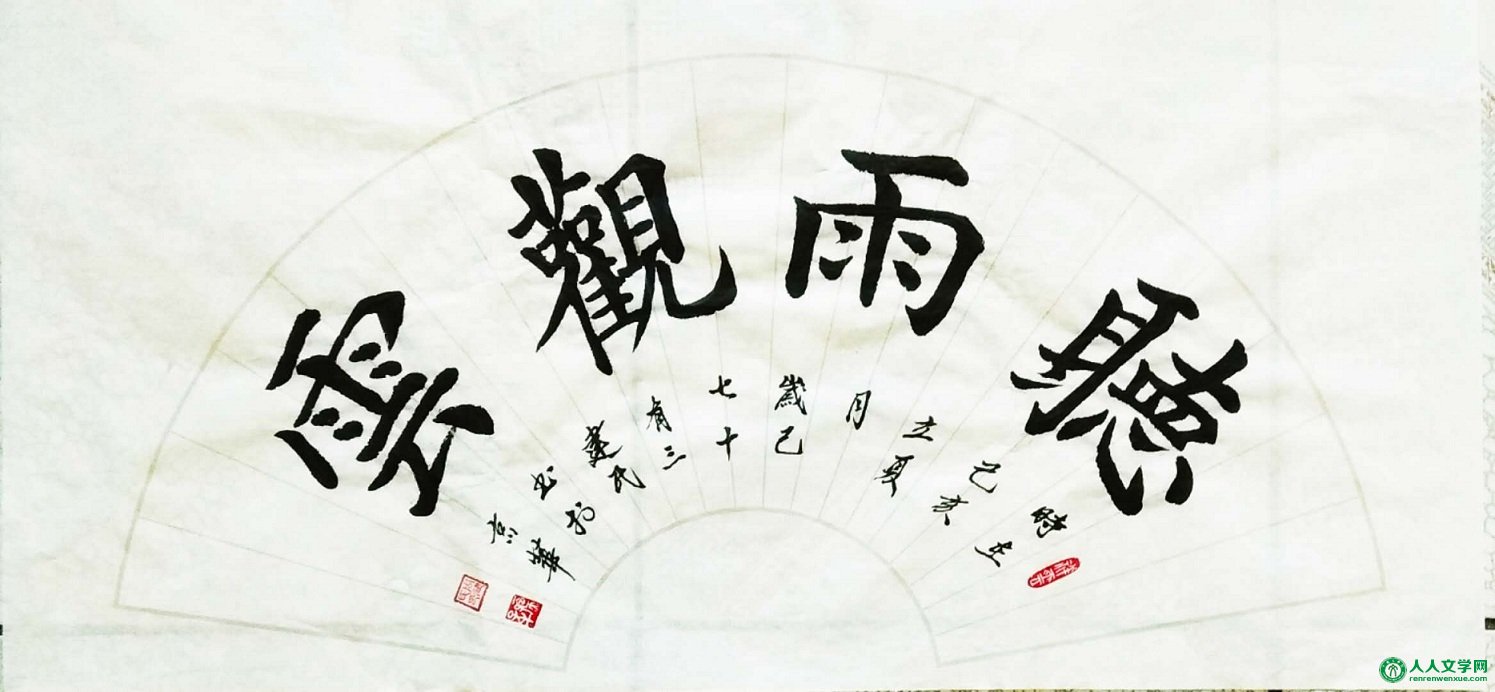 聽雨觀雲
時在
己亥
立夏
月
歲己
七十
有三
民
书於
京華
人人文学网
renrenwenxue.com